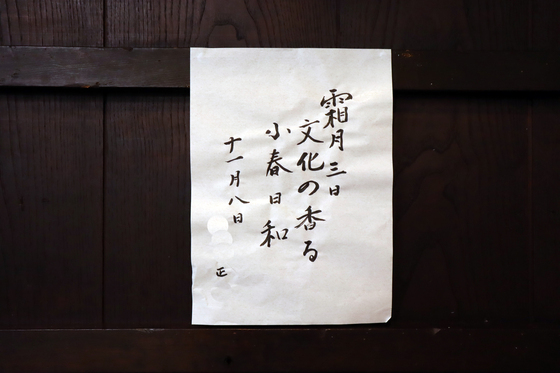 霜月三日
文化の香る
小春日和
十一月八日
正